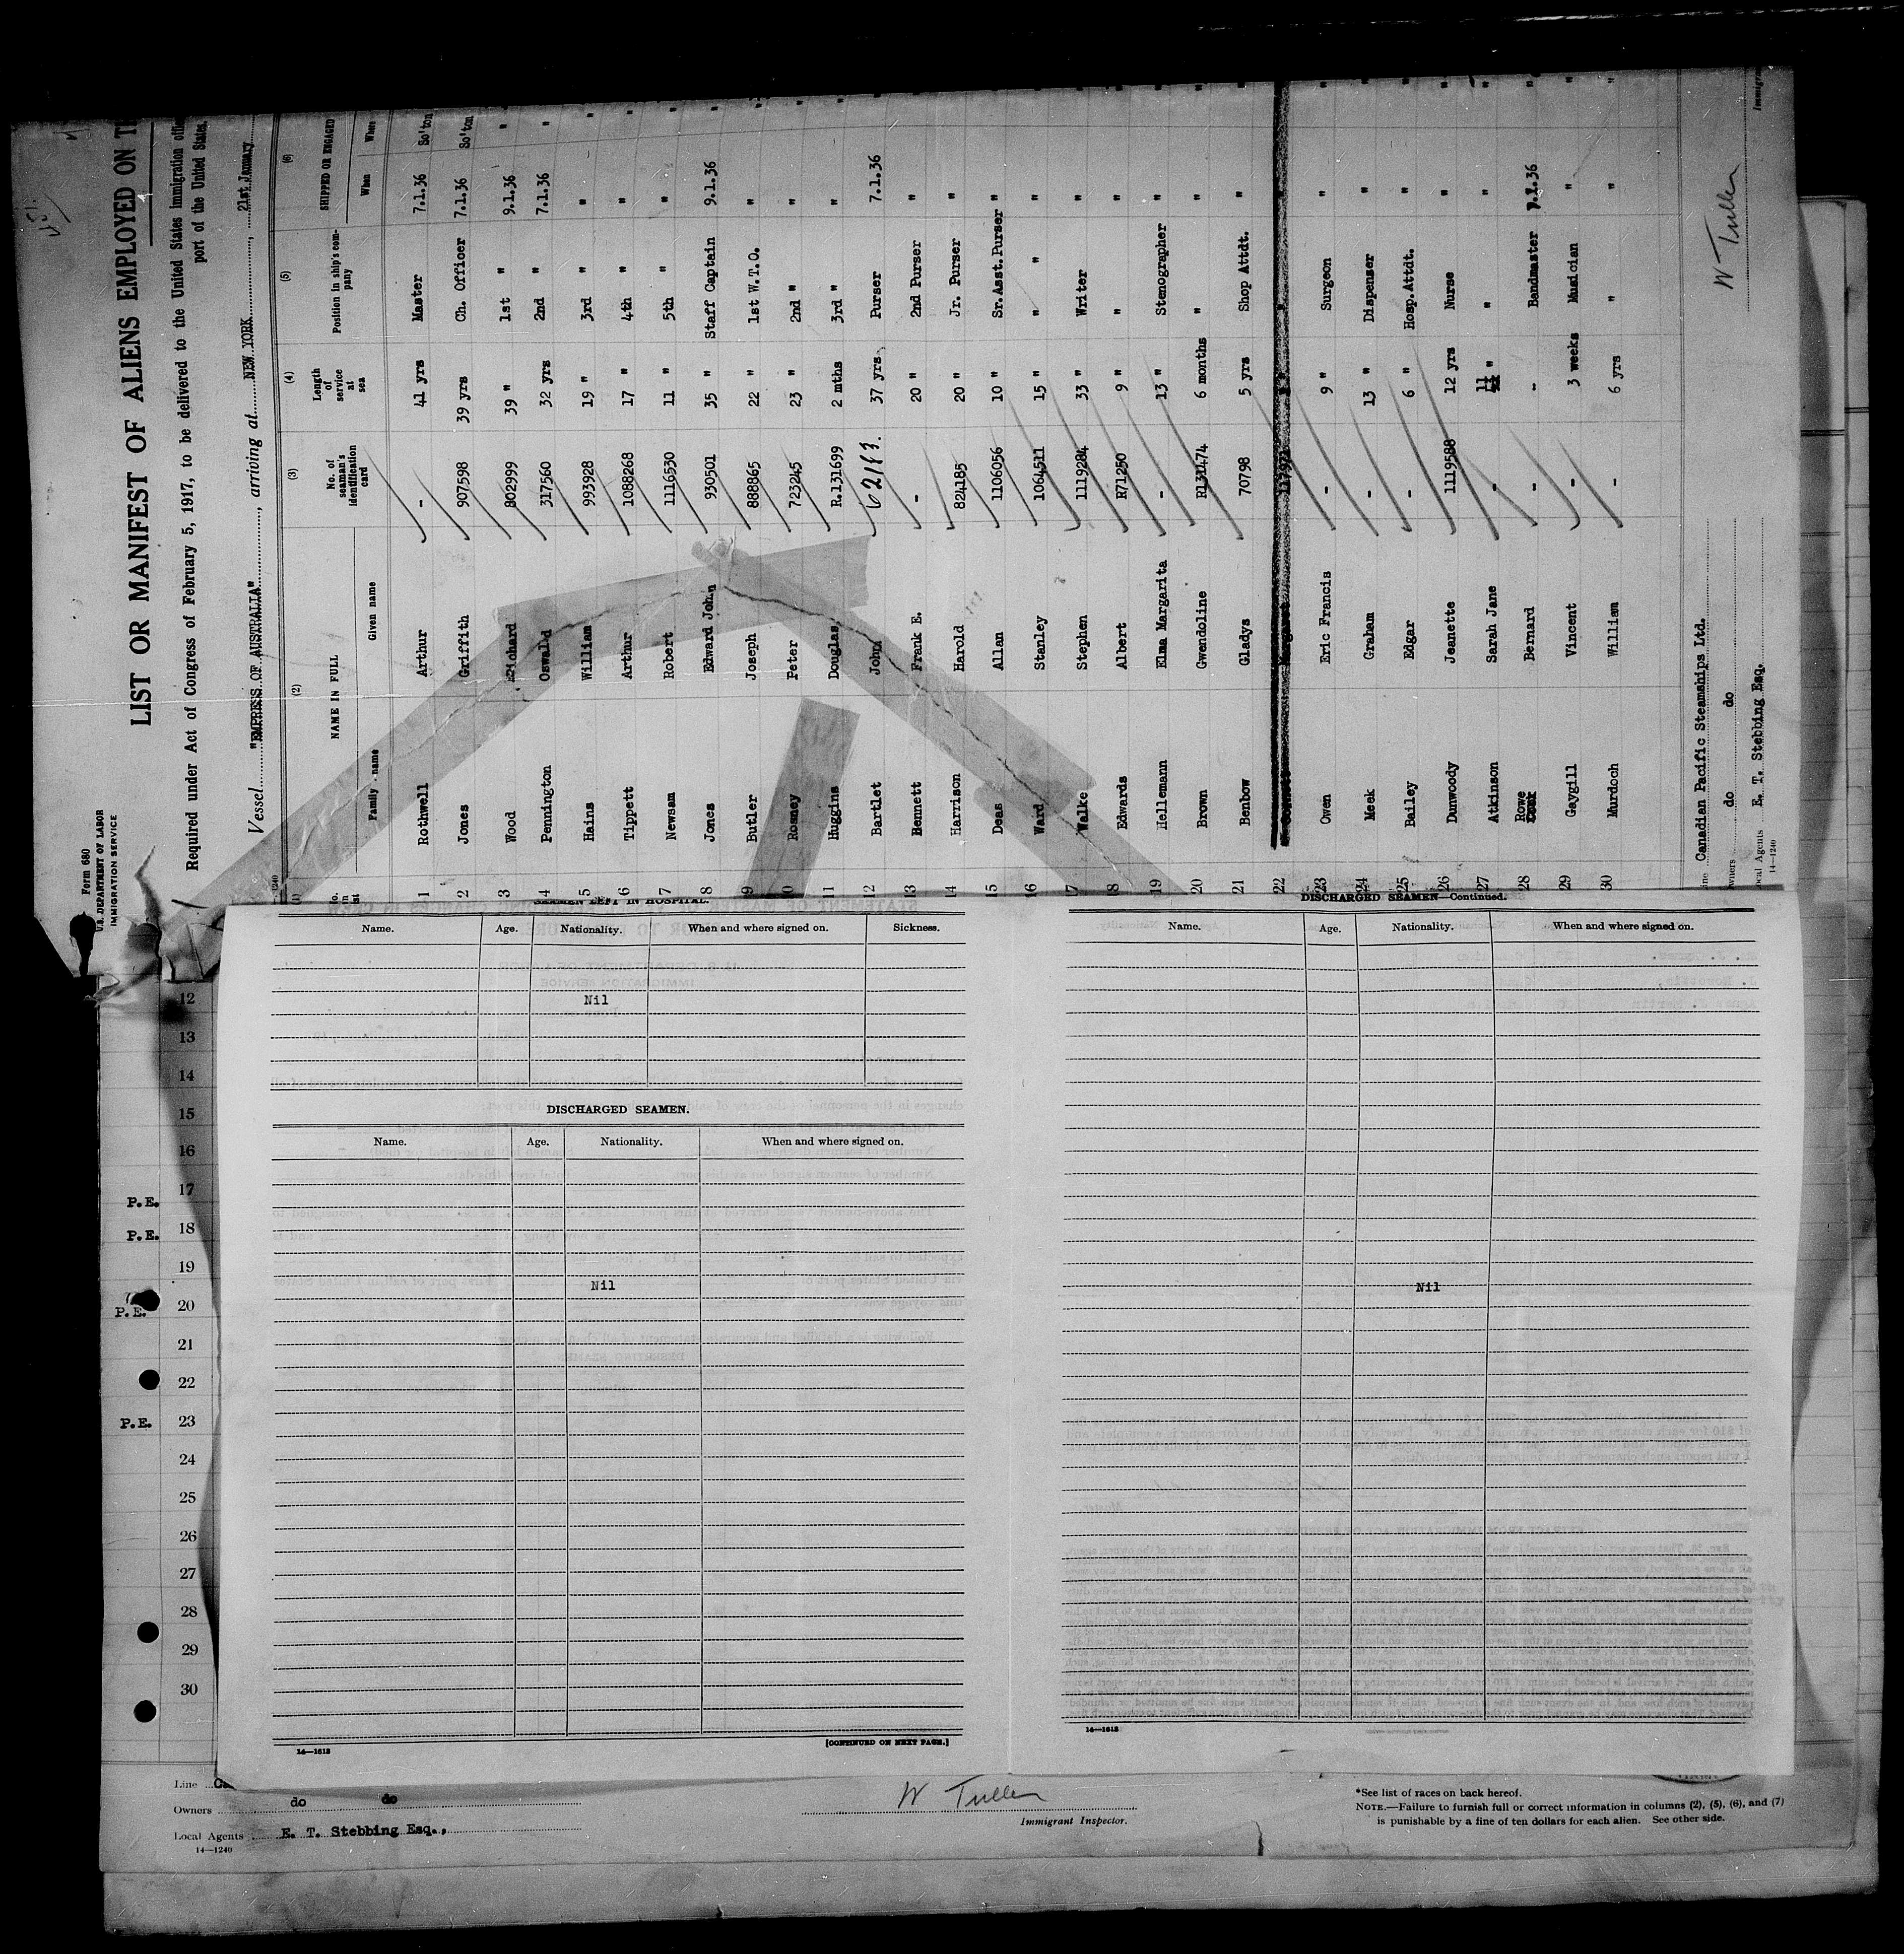 Form 680
U.S. DEPARTMENT OF LABOR
IMMIGRATION SERVICE
LIST OR MANIFEST OF ALIENS EMPLOYED ON
Required under Act of Congress of February 5, 1917, to be delivered to the United States immigration
port of the United States.
Vessel "EMPRESS OF AUSTRALIA", arriving at NEW YORK, 21st January
(1) (2) (3) (4) (5) (6)
NAME IN FULL
Family name Given name No. of seaman's identification card Length of service at sea Position in ship's company SHIPPED OR ENGAGED When Where
1 Rothwell Arthur - 41 yrs Master 7.1.36 So'ton
2 Jones Griffith 907598 39 yrs Ch. Officer 7.1.36 So'ton
3 Wood Richard 802999 39 " 1st " 9.1.36 "
4 Pennington Oswald 317560 32 yrs 2nd " 7.1.36 "
5 Hains William 993928 19 " 3rd " " "
6 Tippett Arthur 1088268 17 " 4th " " "
7 Newsam Robert 1116530 11 " 5th " " "
8 Jones Edward John 930501 35 " Staff Captain 9.1.36 "
9 Butler Joseph 888865 22 " 1st W.T.O. " "
10 Rosney Peter 723245 23 " 2nd " " "
11 Huggins Douglas R.131699 2 mths 3rd " " "
12 Bartlet John 37 yrs Purser 7.1.36 "
13 Bennett Frank E. - 20 " 2nd Purser " "
14 Harrison Harold 824185 20 " Jr. Purser " "
15 Deas Allan 1106056 10 " Sr.Asst.Purser " "
16 Ward Stanley 1064511 15 " " " " "
17 Walke Stephen 1119284 33 " Writer " "
18 Edwards Albert R71250 9 " " " "
19 Hellemann Elma Margarita - 13 " Stenographer " "
20 Brown Gwendoline R131474 6 months " " "
21 Benbow Gladys 70798 5 yrs Shop Attdt. " "
22 Margaret
23 Owen Eric Francis - 9 " Surgeon " "
24 Meek Graham - 13 " Dispenser " "
25 Bailey Edgar - 6 " Hosp.Attdt. " "
26 Dunwoody Jeanette 1119588 12 yrs Nurse " "
27 Atkinson Sarah Jane - 11 " " " "
28 Rowe Bernard - - Bandmaster 7.1.36 "
29 Gaygill Vincent - 3 weeks Musician " "
30 Murdoch William - 6 yrs " " "
Canadian Pacific Steamships Ltd.
do do
E. T. Stebbing Esq.
14—1240
W Tullen
SEAMEN LEFT IN HOSPITAL.
Name. Age. Nationality. When and where signed on. Sickness.
Nil
DISCHARGED SEAMEN.
Name. Age. Nationality. When and where signed on.
Nil
14—1613
[CONTINUED ON NEXT PAGE.]
DISCHARGED SEAMEN—Continued.
Name. Age. Nationality. When and where signed on.
Nil
14—1613
12
13
14
15
16
P.E. 17
P.E. 18
19
P.E. 20
21
22
P.E. 23
24
25
26
27
28
29
30
Line
Owners do do
Local Agents E. T. Stebbing Esq.,
14—1240
W Tullen
Immigrant Inspector.
*See list of races on back hereof.
NOTE.—Failure to furnish full or correct information in columns (2), (5), (6), and (7)
is punishable by a fine of ten dollars for each alien. See other side.